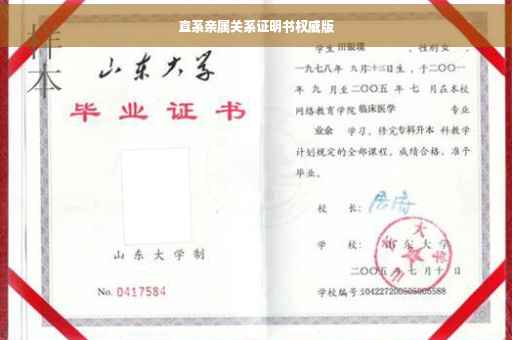 直系亲属关系证明书权威版
样本
山东大学
毕业证书
山东大学制
No. 0417584
学生 田银瑛 ，性别女，
一九七八年 九月十三日生，于二〇〇一
年 九 月至二〇〇五 年 七 月在本校
网络教育学院 临床医学 专业
业余 学习，修完 专科升本 科教学
计划规定的全部课程，成绩合格，准予
毕业。
校 长：
学 校：山东大学
二〇〇五 年 七 月 十 日
学校编号:104227200505005588